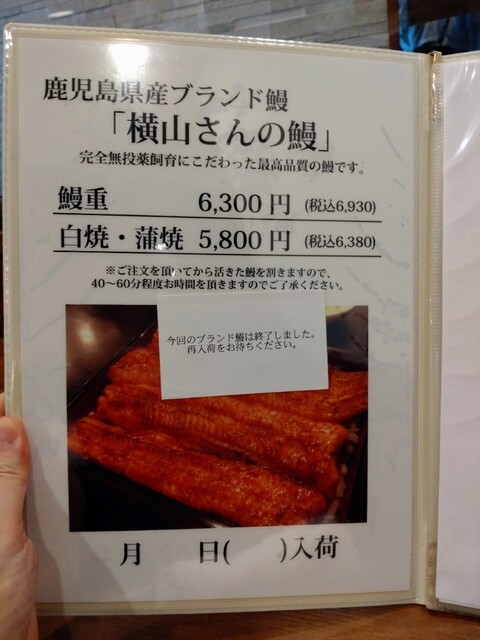 鹿児島県産ブランド鰻
「横山さんの鰻」
完全無投薬飼育にこだわった最高品質の鰻です。
鰻重 6,300 円 (税込6,930)
白焼・蒲焼 5,800 円 (税込6,380)
※ご注文を頂いてから活きた鰻を割きますので、
40～60分程度お時間を頂きますのでご了承ください。
今回のブランド鰻は終了しました。
再入荷をお待ちください。
月 日( )入荷